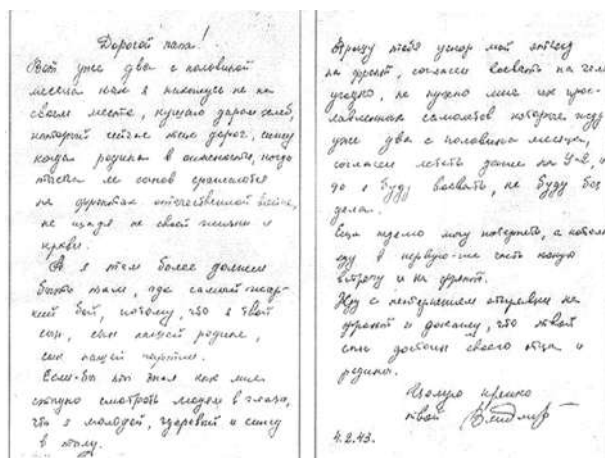 Дорогой папа!
Вот уже два с половиной
месяца как я нахожусь не на
своем месте, кушаю даром хлеб,
который сейчас так дорог, сижу
когда родина в опасности, когда
тысячи ее сынов сражаются
на фронтах отечественной войны,
не щадя не своей жизни и
крови.
А я тем более должен
быть там, где самый жар-
кий бой, потому, что я твой
сын, сын нашей родины,
сын нашей партии.
Если-бы ты знал как мне
стыдно смотреть людям в глаза,
что я молодой, здоровый и сижу
в тылу.
Прошу тебя ускорь мой
на фронт, согласен воевать на чем
угодно, не нужно мне их прос-
лавленных самолетов которых жду
уже два с половиной месяца,
согласен лететь даже на У-2, 
буду воевать, не буду без
дела.
Еще могу потерпеть, а потом
еду в первую-же часть какую
встречу и на фронт.
Жду с нетерпением отправки на
фронт и докажу, что твой
сын достоин своего отца и
родины.
Целую крепко
твой Владимир
4.2.43.